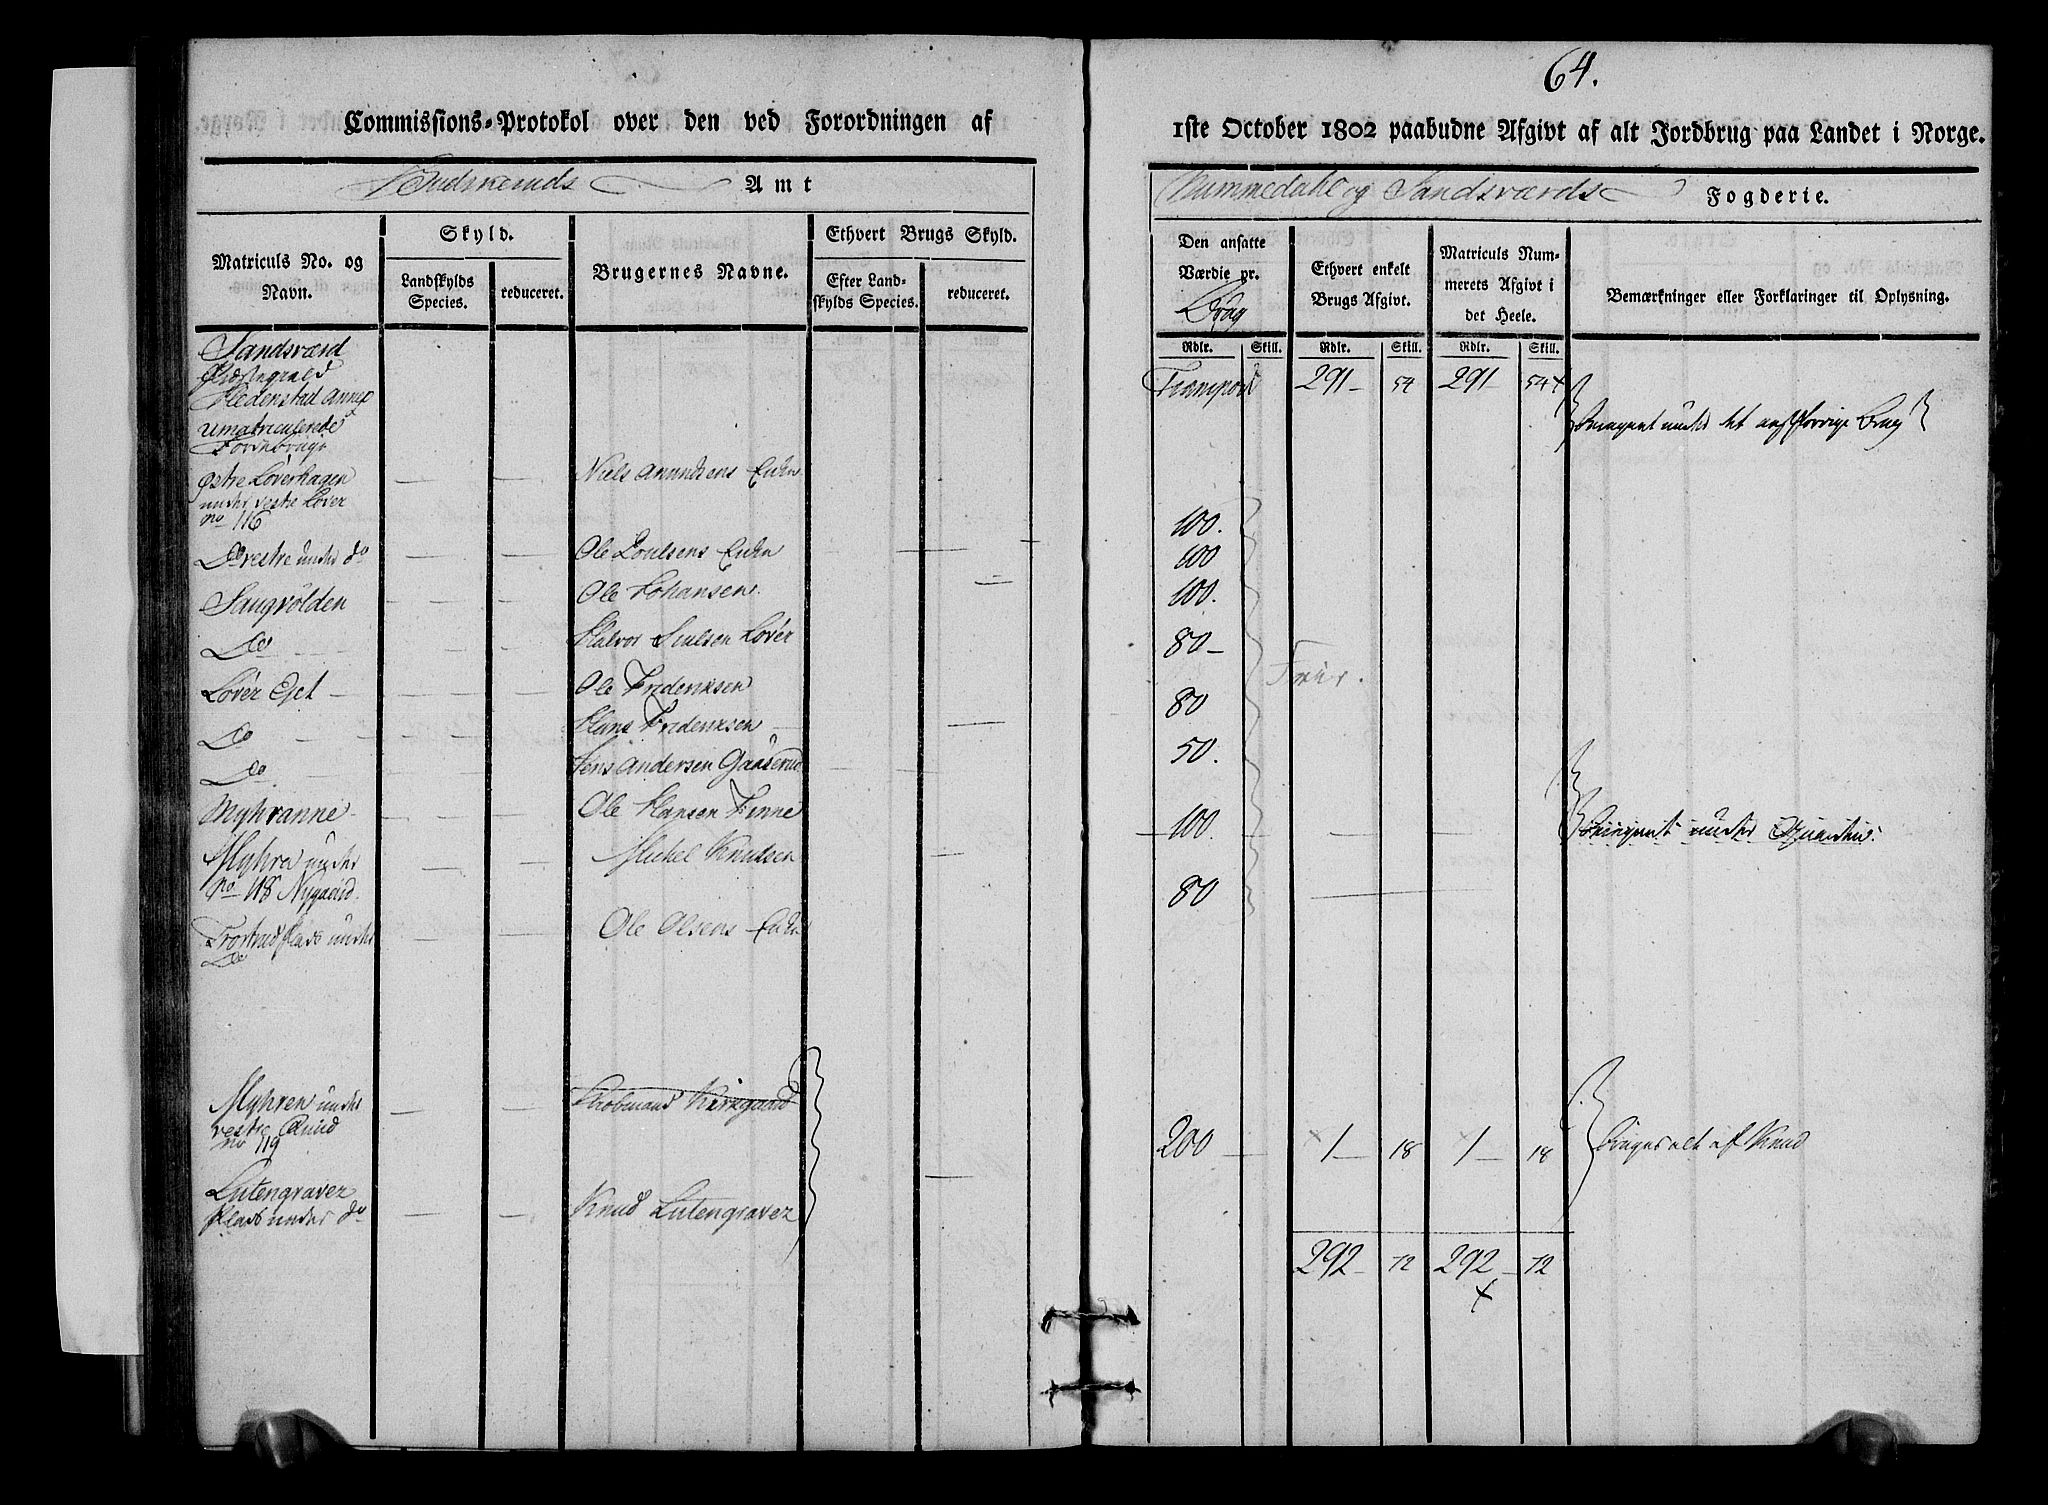 64.
Commissions-Protokol over den ved Forordningen af
1ste October 1802 paabudne Afgivt af alt Jordbrug paa Landet i Norge.
Budskeruds Amt
Nummedahl og Sandsværds Fogderie.
Matriculs No. og Navn.
Skyld.
Landskylds Species.
reduceret.
Brugernes Navne.
Ethvert Brugs Skyld.
Efter Land-
skylds Species.
reduceret.
Den ansatte
Værdie pr.
Brug
Ethvert enkelt
Brugs Afgivt.
Matriculs Num-
merets Afgivt i
det Heele.
Bemærkninger eller Forklaringer til Oplysning.
Rdlr. Skill. Rdlr. Skill. Rdlr. Skill.
Sandsværd
Præstegield
Hedenstad Annex
umatriculerede
Transport 291 54 291 54
østre Løverhagen Niels Amundsens Enke
under vestre Løver
no 116 100.
Do vestre under do Ole Poulsens Enke 100
Saugvolden Ole Johansen 100.
Do Halvor Løver 80
Frie.
Løver Eget Ole Fredericksen 80
Do Hans Fredericksen 50.
Do Jens Andersen Gaaserud
Myhranne Ole Hansen Finne 100
Myhra under Michel Knudsen
no 118 Nygaard 80
Plads under Ole Olsens Enke
Do
Myhren under Kirkgaard
vestre
no 119 200 1 18 1 18 af Knud
Lutengraver
Plads under do Knud Lutengraver
292 72 292 72